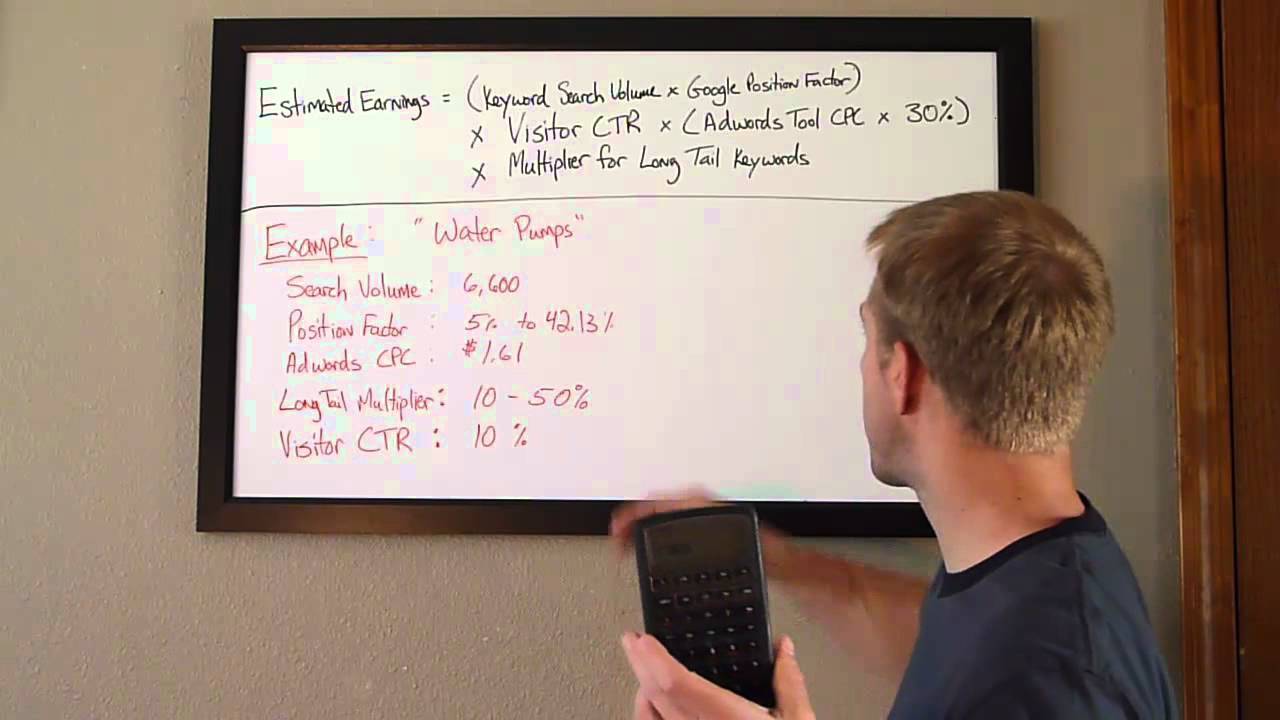 Estimated Earnings = (Keyword Search Volume x Google Position Factor)
x Visitor CTR x (Adwords Tool CPC x 30%)
x Multiplier for Long Tail Keywords
Example: "Water Pumps"
Search Volume: 6,600
Position Factor : 5% to 42.13%
Adwords CPC : $1.61
Long Tail Multiplier: 10 - 50%
Visitor CTR : 10 %